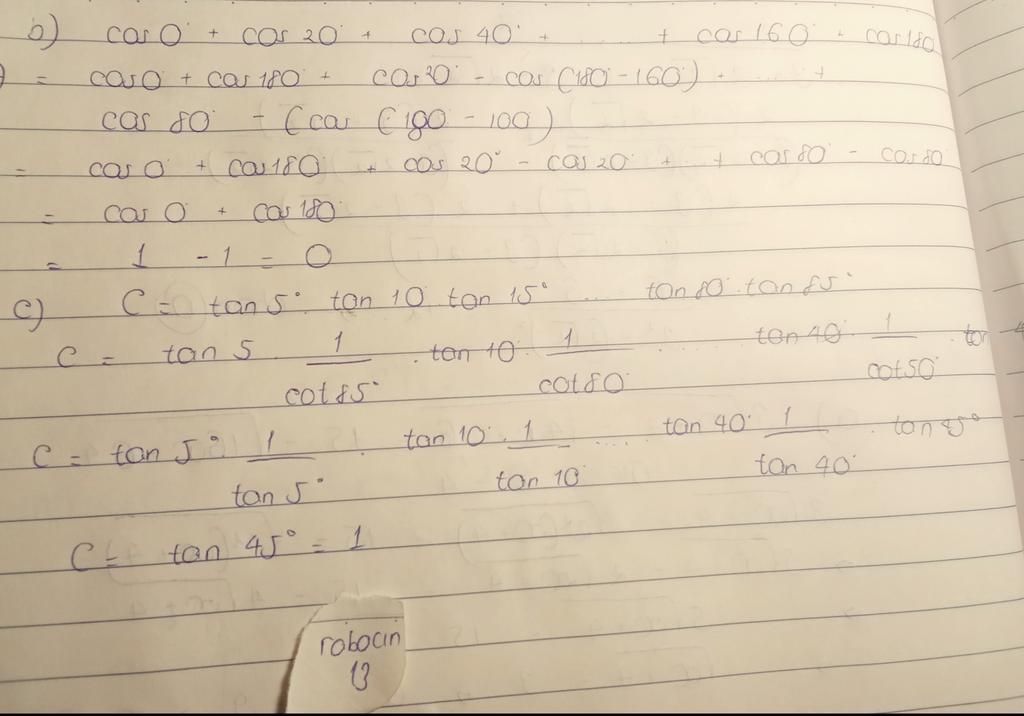 b) cos 0° + cos 20° + cos 40° + ...... + cos 160° + cos 180
= cos 0° + cos 180° + cos 20° - cos (180° - 160°) + ..... +
cos 80° - (cos (180 - 100)
= cos 0° + cos 180° + cos 20° - cos 20° + .. + cos 80° - cos 80
= cos 0° + cos 180°
= 1 - 1 = 0
c) C = tan 5° . tan 10 tan 15° ..... tan 80° . tan 85°
C = tan 5 . 1/cot 85° . tan 10° . 1/cot 80° ..... tan 40° . 1/cot 50° . tan
C = tan 5° 1/tan 5° . tan 10° . 1/tan 10° .... tan 40° . 1/tan 40° . tan 45°
C = tan 45° = 1
robocin
13